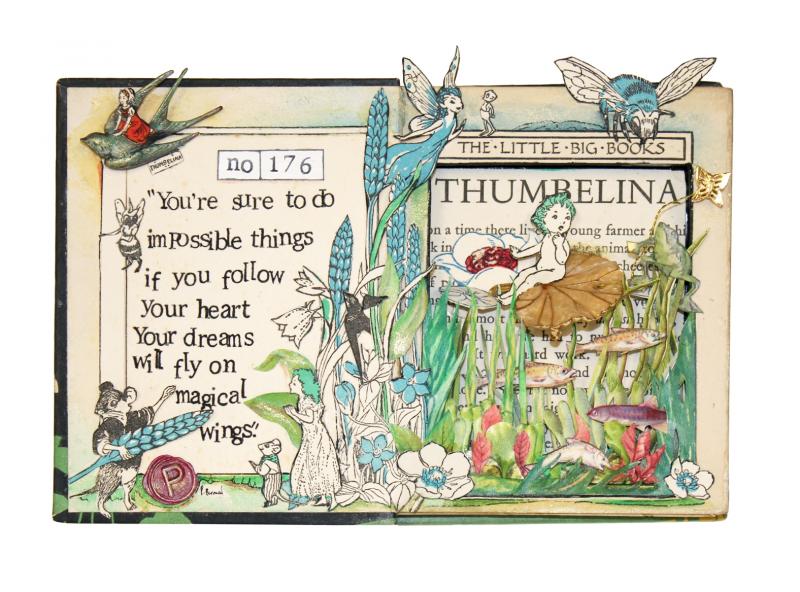 THUMBELINA
no 176
"You're sure to do
impossible things
if you follow
Your heart
Your dreams
will fly on
magical
wings."
P
THE·LITTLE·BIG·BOOKS
THUMBELINA
on a time there young farmer a
k in the anima
most
hard work,
nd